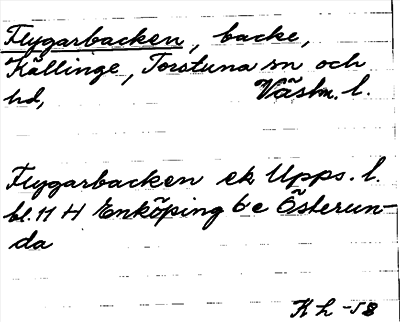 Flygarbacken, backe,
Källinge, Torstuna sn och
hd, Västm. l.
Flygarbacken ek Upps. l.
bl. 11 H Enköping 6 e Österun-
da
K h -58